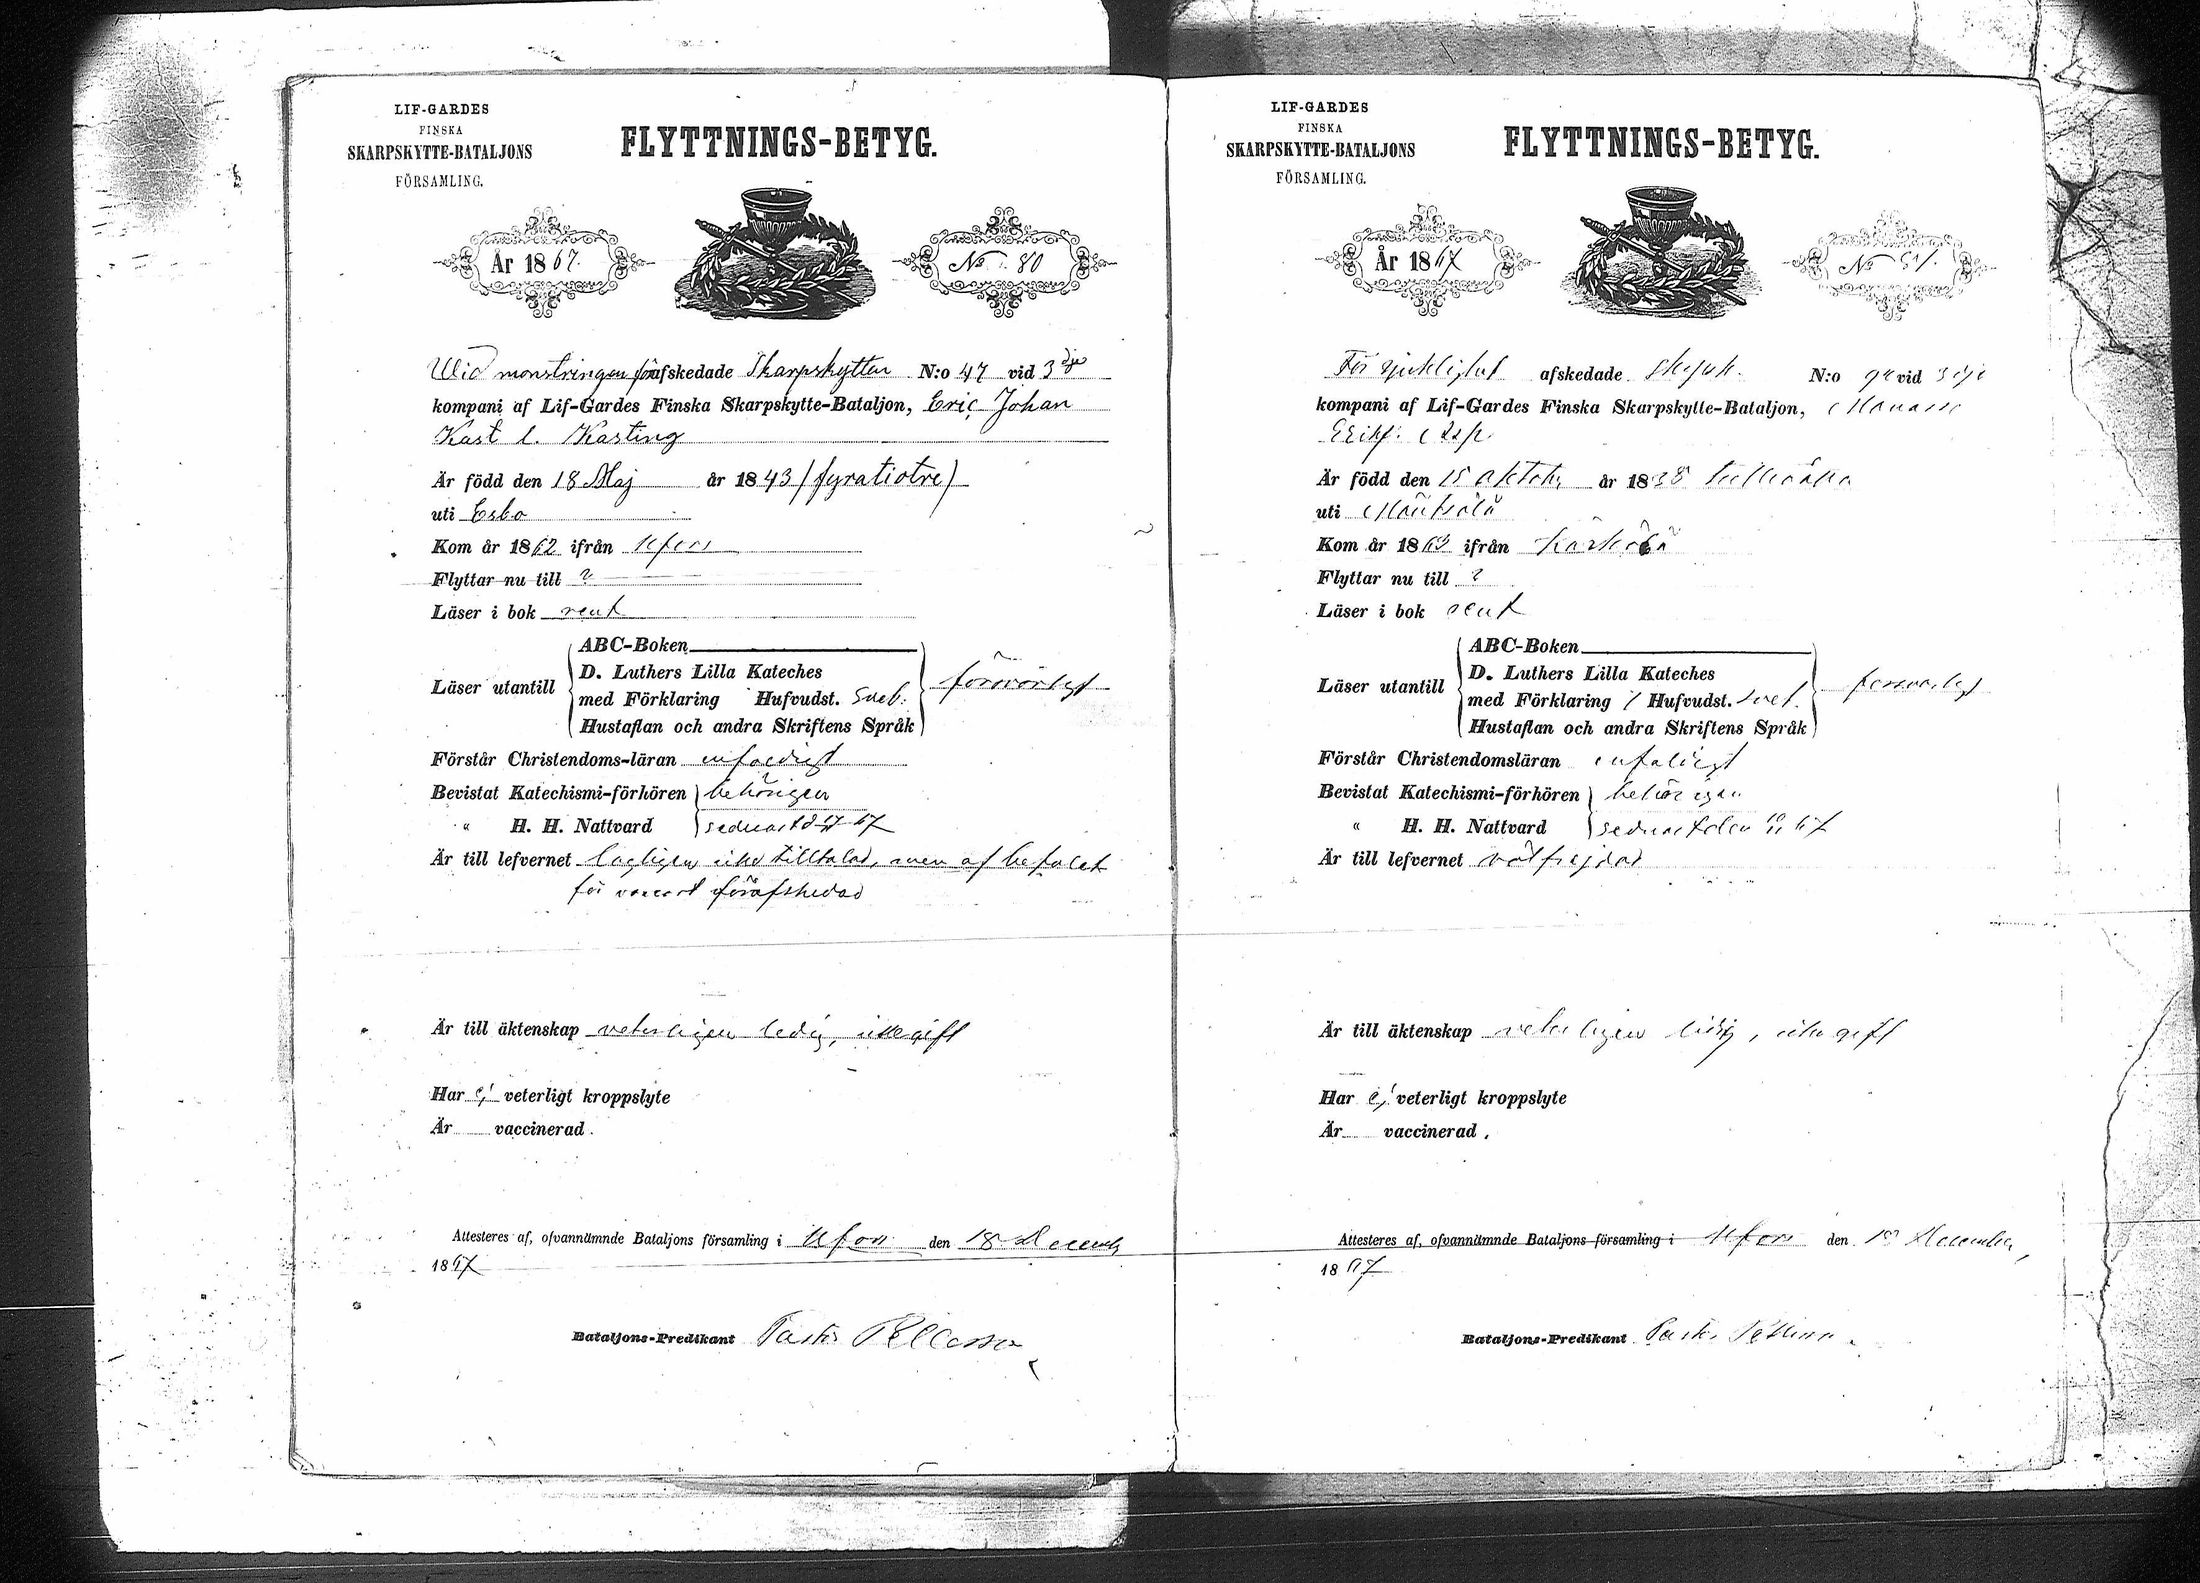 LIF-GARDES
FINSKA
SKARPSKYTTE-BATALJONS
FÖRSAMLING.
FLYTTNINGS-BETYG.
År 1867.
No 80
Wid monstringen förafskedade Skarpskytten N:o 47 vid 3dje
kompani af Lif-Gardes Finska Skarpskytte-Bataljon, Eric Johan
Kast l. Kasting
Är född den 18 Maj år 1843 (fyratiotre)
uti Esbo
Kom år 1862 ifrån Hfors
Flyttar nu till ?
Läser i bok rent
Läser utantill
ABC-Boken
D. Luthers Lilla Kateches
med Förklaring Hufvudst. Sveb.
Hustaflan och andra Skriftens Språk
försvarligt
Förstår Christendoms-läran enfaldigt
Bevistat Katechismi-förhören behörigen
" H. H. Nattvard senast d. 67
Är till lefvernet lagligen icke tilltalad, men af befälet
för förafskedad
Är till äktenskap veterligen ledig, icke gift
Har ej veterligt kroppslyte
Är vaccinerad.
Attesteres af, ofvannämnde Bataljons församling i Hfors den 18 Decemb
1867
Bataljons-Predikant
LIF-GARDES
FINSKA
SKARPSKYTTE-BATALJONS
FÖRSAMLING.
FLYTTNINGS-BETYG.
År 1867
No 81.
För sjuklighet afskedade Skpsk. N:o vid 3dje
kompani af Lif-Gardes Finska Skarpskytte-Bataljon, Manasse
Eriksf. Asp.
Är född den 15 Oktob. år 1838 trettioåtta
uti Mäntsälä
Kom år 1863 ifrån Kärkölä
Flyttar nu till ?
Läser i bok rent
Läser utantill
ABC-Boken
D. Luthers Lilla Kateches
med Förklaring / Hufvudst. Sveb.
Hustaflan och andra Skriftens Språk
försvarligt
Förstår Christendomsläran enfaldigt
Bevistat Katechismi-förhören behörigen
" H. H. Nattvard senast den 67
Är till lefvernet välfrejdad
Är till äktenskap veterligen ledig, icke gift
Har ej veterligt kroppslyte
Är vaccinerad.
Attesteres af, ofvannämnde Bataljons församling i Hfors den December
1867
Bataljons-Predikant